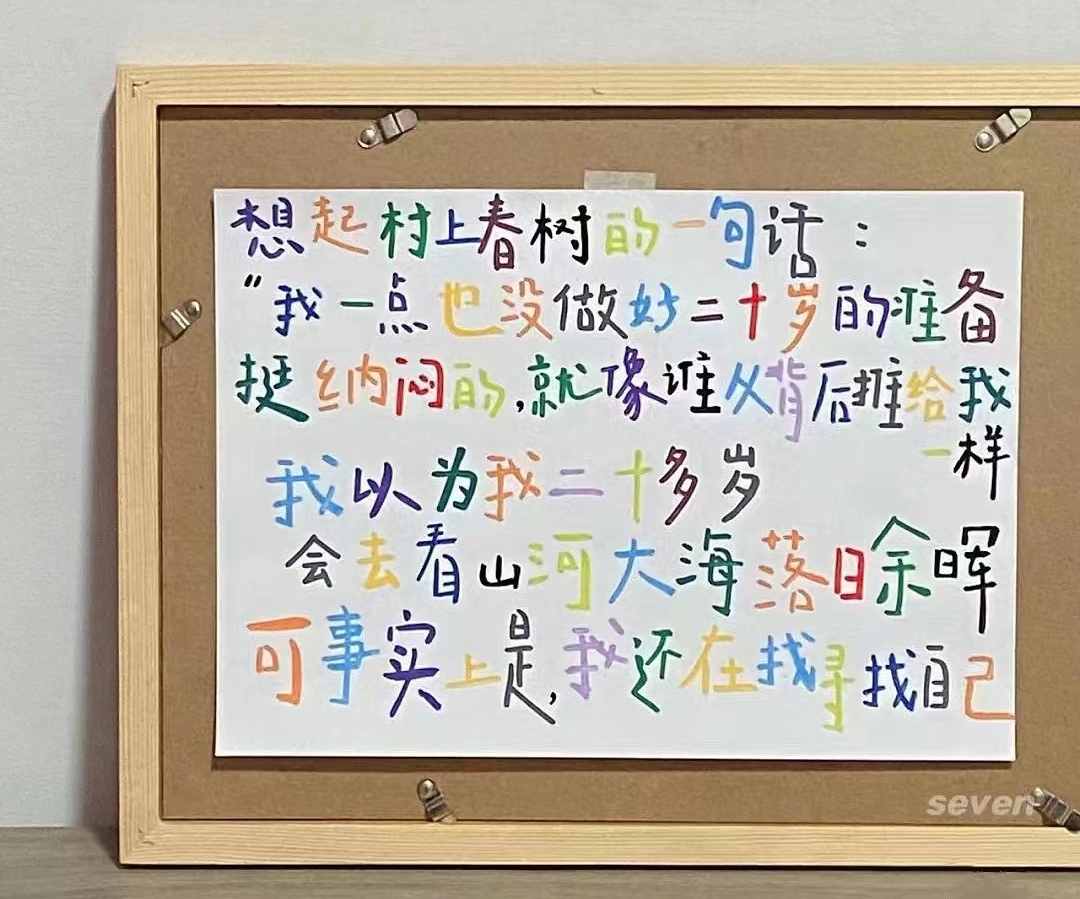 想起村上春树的一句话：
“我一点也没做好二十岁的准备
挺纳闷的,就像谁从背后推给我
一样
我以为我二十多岁
会去看山河大海落日余晖
可事实上是,我还在找寻找自己
seven